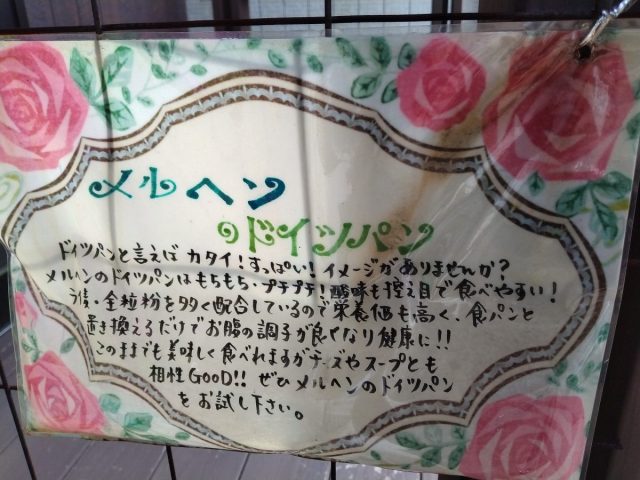 メルヘン
のドイツパン
ドイツパンと言えばカタイ!すっぱい!イメージがありませんか?
メルヘンのドイツパンはもちもち・プチプチ!酸味も控え目で食べやすい!
ライ麦・全粒粉を多く配合しているので栄養価も高く、食パンと
置き換えるだけでお腹の調子が良くなり健康に!!
このままでも美味しく食べれますがチーズやスープとも
相性GOOD!! ぜひメルヘンのドイツパン
をお試し下さい。